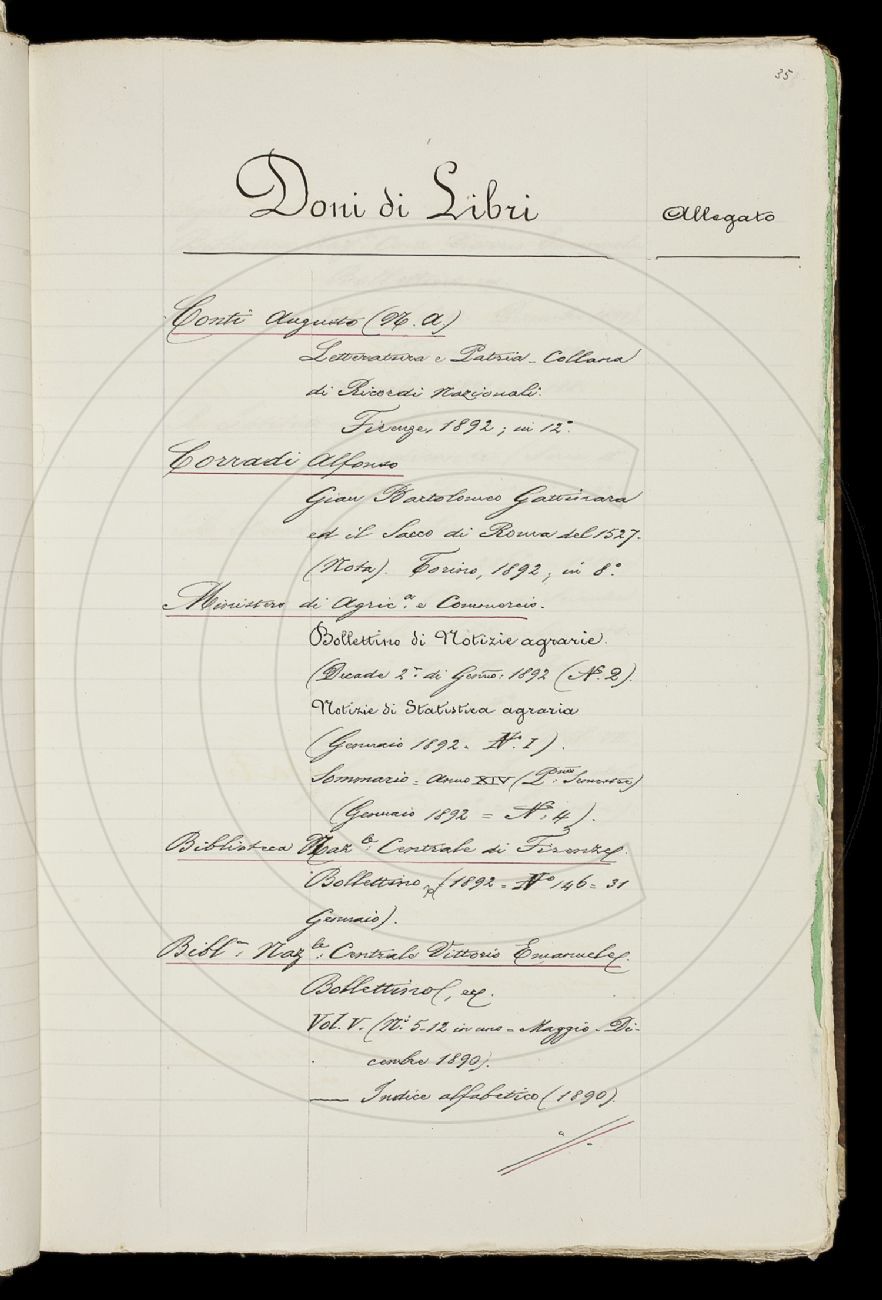 35
Doni di Libri
Allegato
Conti Augusto (N. A.)
Letteratura e Patria - Collana
di Ricordi Nazionali.
Firenze, 1892; in 12°
Corradi Alfonso
Gian Bartolomeo Gattinara
ed il Sacco di Roma del 1527.
(Nota). Torino, 1892; in 8°.
Ministero di Agric.a e Commercio.
Bollettino di Notizie agrarie.
(Decade 2a di Genn°: 1892 (N. 2).
Notizie di Statistica agraria
(Gennaio 1892 = N. I).
Sommario = Anno XIV (Imo Semestre)
(Gennaio 1892 = N. 4).
Biblioteca Naz.le Centrale di Firenze.
Bollettino, (1892 = N° 146 = 31
Gennaio).
Bibl.a Naz.le Centrale Vittorio Emanuele.
Bollettino, ec.
Vol. V. (N.i 5-12 in uno = Maggio - Di-
cembre 1890).
— Indice alfabetico (1890).